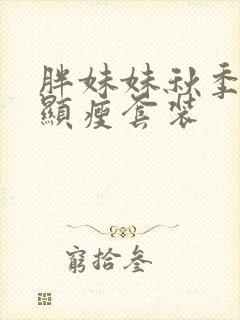 胖妹妹秋季
顯瘦套裝
窮拾叁